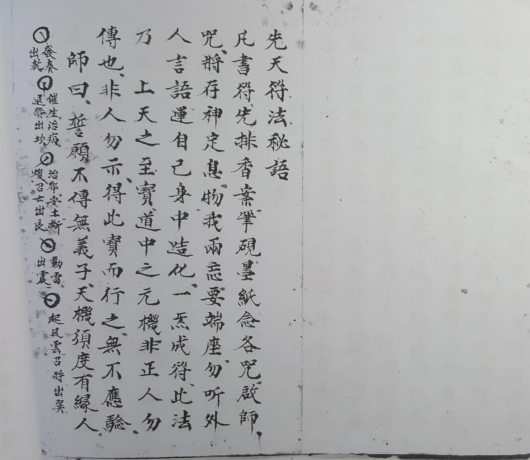 先天符法秘語
凡書符先排香案筆硯墨紙念各咒啟師,
咒、將存神定息物我兩忘要端座勿听外
人言語運自己身中造化一炁成符此法
乃 上天之至寳道中之元機非正人勿
傳也、非人勿示得此寳而行之無不應驗、
師曰、誓願不傳無義子天機須度有緣人
發奏
出乾
催生治病
出坎
治邪安土斬
出艮
動雷
出震
起風雲召將出巽